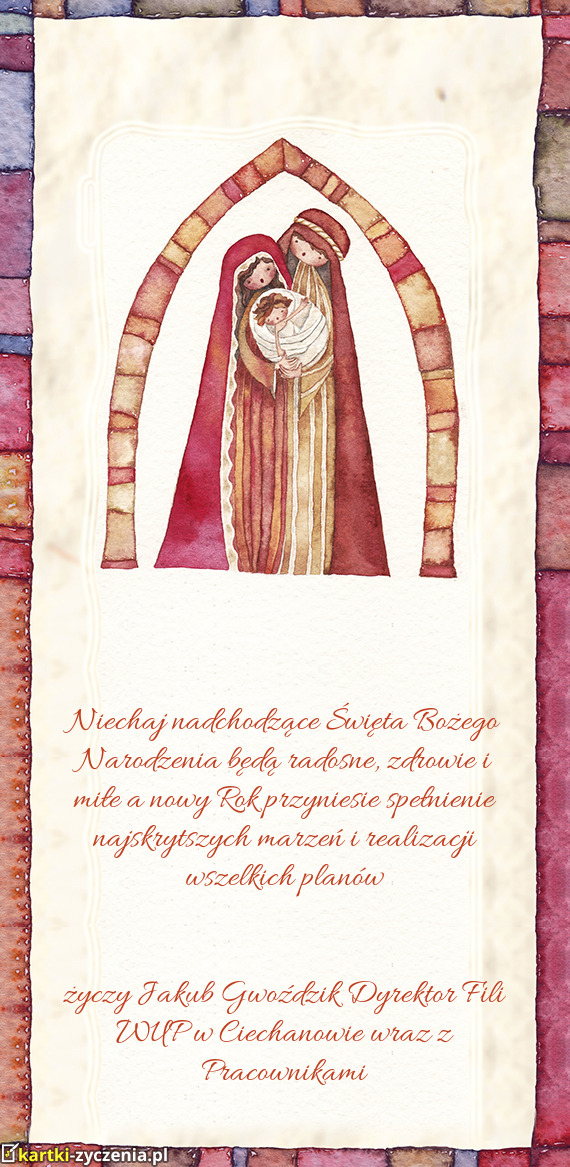 Niechaj nadchodzące Święta Bożego
Narodzenia będą radosne, zdrowie i
miłe a nowy Rok przyniesie spełnienie
najskrytszych marzeń i realizacji
wszelkich planów
życzy Jakub Gwoździk Dyrektor Fili
WUP w Ciechanowie wraz z
Pracownikami
kartki-zyczenia.pl